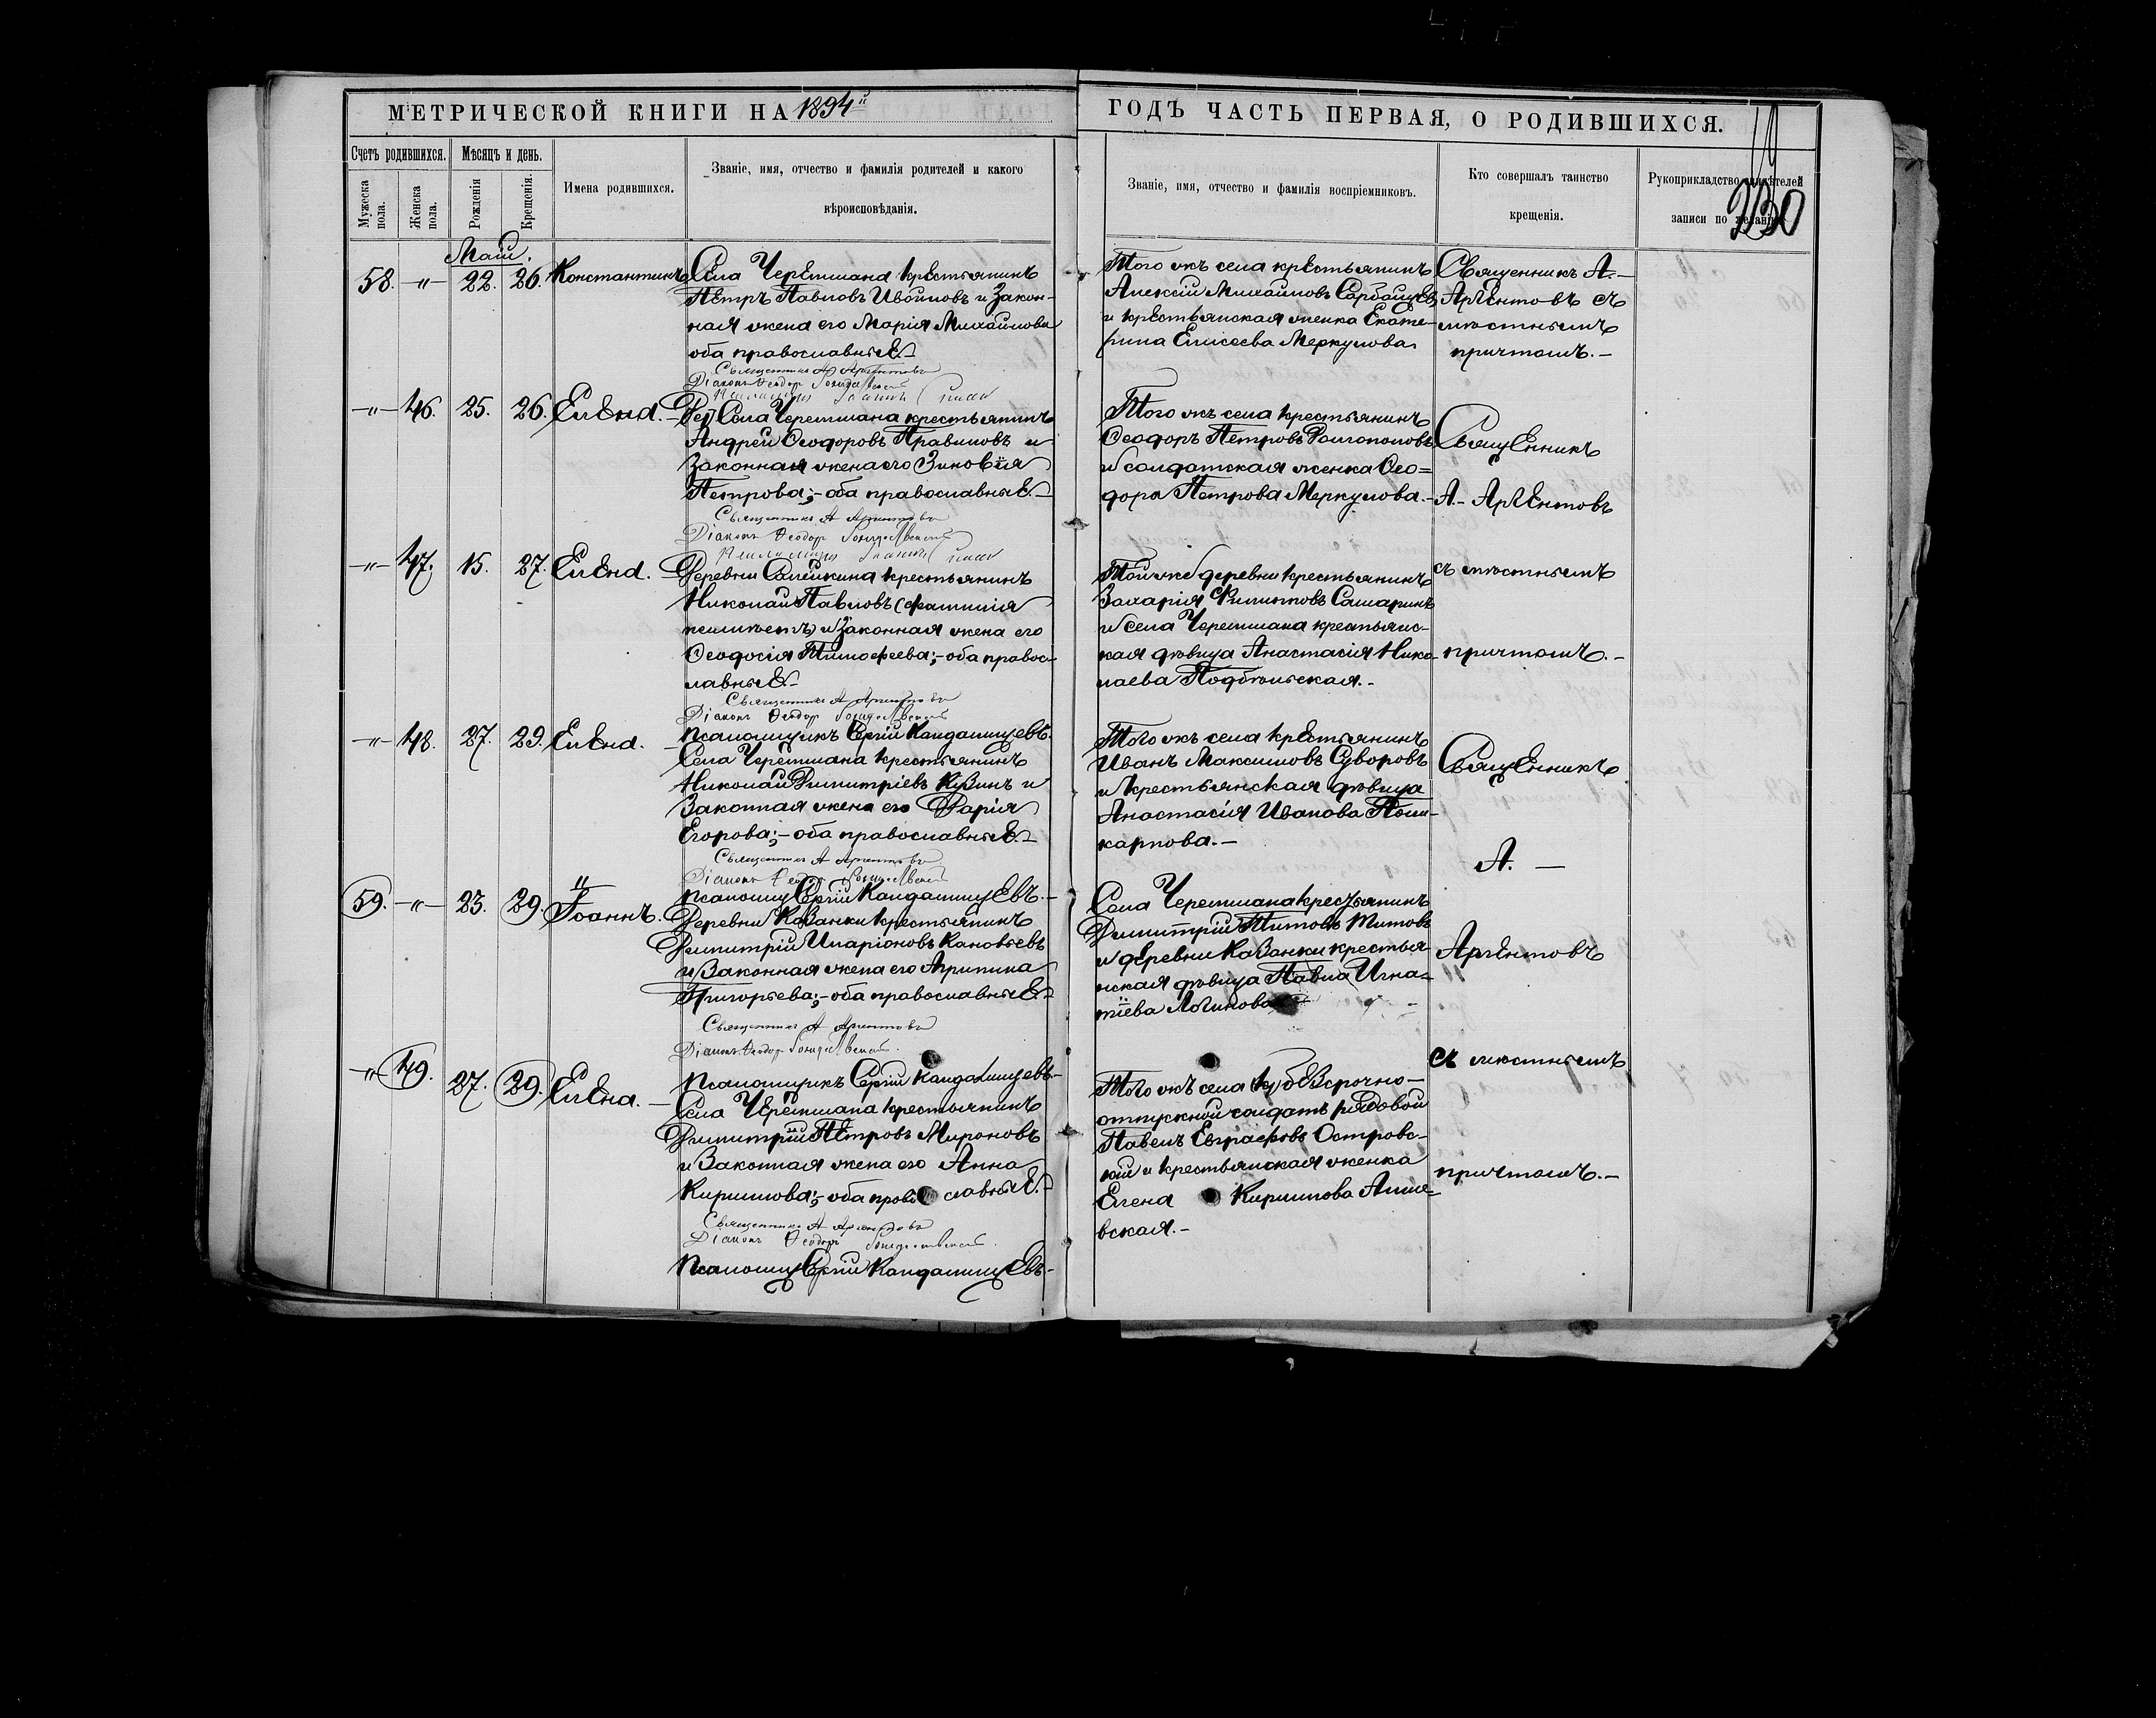 МЕТРИЧЕСКОЙ КНИГИ НА 1894й
ГОДЪ ЧАСТЬ ПЕРВАЯ, О РОДИВШИХСЯ.
Счетъ родившихся.
Мужеска пола.
Женска пола.
Мѣсяцъ и день.
Рожденія
Крещенія.
Имена родившихся.
Званіе, имя, отчество и фамилія родителей и какого
вѣроисповѣданія.
Званіе, имя, отчество и фамилія воспріемниковъ.
Кто совершалъ таинство
крещенія.
Рукоприкладство свидѣтелей
записи по желанію
330
Маій.
58. -"- 22. 26. Константинъ
Села Черемшана крестьянинъ
Петръ Павловъ и закон-
ная жена его Марія Михайлова
оба православные.-
Священникъ А Аргентовъ
Діаконъ Ѳеодор
Того жъ села крестьянинъ
Алексій Михайловъ
и крестьянская женка Екате-
рина Елисеева Меркулова.
Священникъ А.-
Аргентовъ съ
мѣстнымъ
причтомъ.-
-"- 46. 25. 26. Елена.-
Села Черемшана крестьянинъ
Андрей Ѳеодоровъ Правиловъ и
законная жена его Зиновія
Петрова;-оба православные.-
Священникъ А Аргентовъ
Діаконъ Ѳеодор
Того жъ села крестьянинъ
Ѳеодоръ Петровъ Долгополовъ
и солдатская женка Ѳео=
дора Петрова Меркулова.-
Священникъ
А.- Аргентовъ
-"- 47. 15. 27. Елена.-
Деревни Салейкина крестьянинъ
Николай Павловъ (фамиліи
неимѣетъ) и законная жена его
Ѳеодосія Тимоѳеева;-оба правос-
лавные.-
Священникъ А Аргентовъ
Діаконъ Ѳеодор
Псаломщикъ Сергій Кандалинцевъ.
Той же деревни крестьянинъ
Захарія Филиповъ Самаринъ
и села Черемшана крестьянс-
кая дѣвица Анастасія Нико-
лаева Подбѣльская.-
съ мѣстнымъ
причтомъ.-
-"- 48. 27. 29. Елена.
Села Черемшана крестьянинъ
Николай Димитріевъ Кузинъ и
законная жена его Дарія
Егорова;-оба православные.-
Священникъ А Аргентовъ
Діаконъ Ѳеодор
Псаломщ Сергій Кандалинцевъ.-
Того жъ села крестьянинъ
Иванъ Максимовъ Суворовъ
и крестьянская дѣвица
Анастасія Иванова Поли-
карпова.-
Священникъ
А. -
59. -"- 23. 29. Іоаннъ.
Деревни Казанки крестьянинъ
Димитрій Иларіоновъ Кановьевъ
и законная жена его Агрипина
Григорьева;-оба православные.-
Священникъ А Аргентовъ
Діаконъ Ѳеодор
Псаломщикъ Сергій Кандалинцевъ.-
Села Черемшана крестьянинъ
Димитрій Титовъ Титовъ
и деревни Казанки крестья-
нская дѣвица Павла Игна-
тіева Логинова
Аргентовъ
-"- 49. 27. 29. Елена.-
Села Черемшана крестьянинъ
Димитрій Петровъ Мироновъ
и законная жена его Анна
Кирилова;-оба православные.-
Священникъ А Аргентовъ
Діаконъ Ѳеодоръ
Псаломщ Сергій Кандалинцевъ.-
Того жъ села безсрочно-
отпускной солдатъ рядовой
Павелъ Евграфовъ Островс-
кій и крестьянская женка
Елена Кирилова
вская.-
съ мѣстнымъ
причтомъ.-